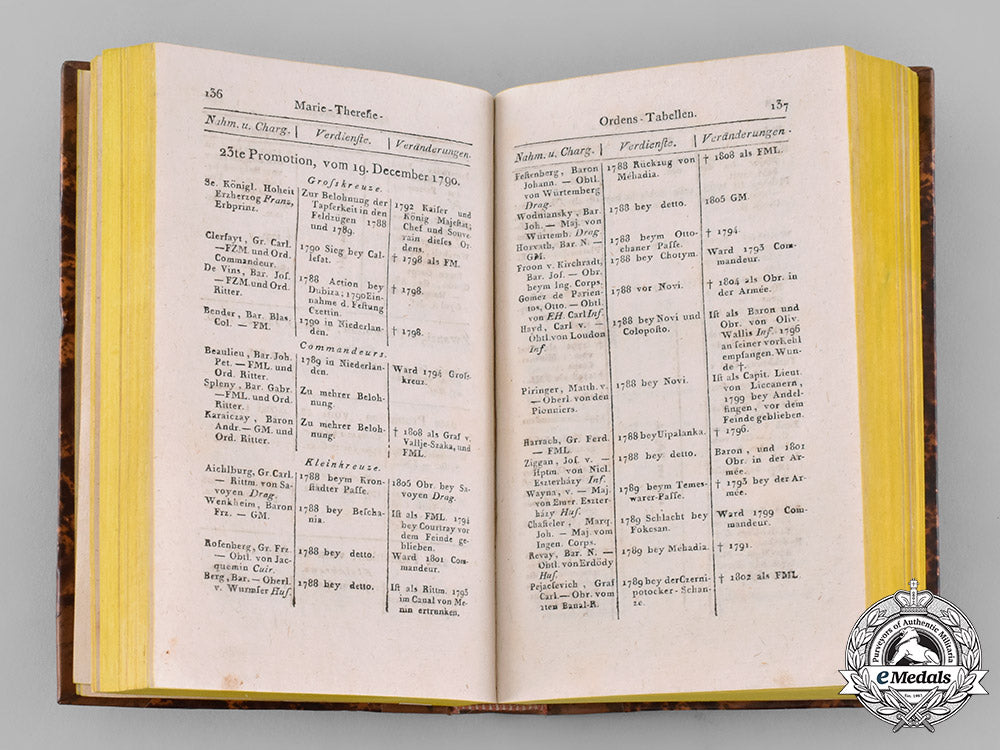 136
Marie-Theresie-
Nahm. u. Charg. | Verdienste. | Veränderungen.
23te Promotion, vom 19. December 1790.
Grosskreuze.
Se. Königl. Hoheit
Erzherzog Franz,
Erbprinz.
Zur Belohnung der
Tapferkeit in den
Feldzügen 1788
und 1789.
1792 Kaiser und
König Majestät;
Chef und Souve-
rain dieses Or-
dens.
Clerfayt, Gr. Carl.
—FZM. und Ord.
Commandeur.
1790 Sieg bey Cal-
lesat.
† 1798 als FM.
De Vins, Bar. Jos.
—FZM. und Ord.
Ritter.
1788 Action bey
Dubiza; 1790 Ein-
nahme d. Festung
Czettin.
† 1798.
Bender, Bar. Blas.
Col. — FM.
1790 in Niederlan-
den.
† 1798.
Commandeurs.
Beaulieu, Bar. Joh.
Pet. — FML. und
Ord. Ritter.
1789 in Niederlan-
den.
Ward 1794 Gross-
kreuz.
Spleny, Bar. Gabr.
—FML. und Ord.
Ritter.
Zu mehrer Beloh-
nung.
Karaiczay, Baron
Andr.—GM. und
Ord. Ritter.
Zu mehrer Beloh-
nung.
† 1808 als Graf v.
Vallje-Szaka, und
FML.
Kleinkreuze.
Aichlburg, Gr. Carl.
— Rittm. von Sa-
voyen Drag.
1788 beym Kron-
stadter Passe.
1805 Obr. bey Sa-
voyen Drag.
Wenkheim, Baron
Frz. — GM.
1788 bey Bescha-
nia.
Ist als FML. 1794
bey Courtray vor
dem Feinde ge-
blieben.
Rosenberg, Gr. Frz.
— Obtl. von Jac-
quemin Cuir.
1788 bey detto.
Ward 1801 Com-
mandeur.
Berg, Bar. — Oberl.
v. Wurmser Hus.
1788 bey detto.
Ist als Rittm. 1793
im Canal von Me-
nin ertrunken.
137
Ordens-Tabellen.
Nahm. u. Charg. | Verdienste. | Veränderungen.
Festenberg, Baron
Johann. — Obtl.
von Würtemberg
Drag.
1788 Rückzug von
Mehadia.
† 1808 als FML.
Wodniansky, Bar.
Joh. — Maj. von
Würtemb. Drag.
1788 bey detto.
1805 GM.
Horvath, Bar. N. —
GM.
1788 beym Otto-
chaner Passe.
† 1794.
Froon v. Kirchradt,
Bar. Jos. — Obr.
beym Ing. Corps.
1788 bey Chotym.
Ward 1793 Com-
mandeur.
Gomez de Parien-
tos, Otto. — Obtl.
von EH. Carl Inf.
1788 vor Novi.
† 1804 als Obr. in
der Armée.
Hayd, Carl v. —
Obtl. von Loudon
Inf.
1788 bey Novi und
Coloposto.
Ist als Baron und
Obr. von Oliv.
Wallis Inf. 1796
an seiner vor Kehl
empfangen. Wun-
de †.
Piringer, Matth. v.
— Oberl. von den
Pionniers.
1788 bey Novi.
Ist als Capit. Lieut.
von Liccanern,
1799 bey Andel-
fingen, vor dem
Feinde geblieben.
Harrach, Gr. Ferd.
— FML.
1788 bey Uipalanka.
† 1796.
Ziggan, Jos. v. —
Hptm. von Nicl.
Eszterházy Inf.
1788 bey detto.
Baron, und 1801
Obr. in der Ar-
mée.
Wayna, v. — Maj.
von Emer. Eszter-
házy Hus.
1789 beym Temes-
warer-Passe.
† 1793 bey der Ar-
mée.
Chasteler, Marq.
Joh. — Maj. vom
Ingen. Corps.
1789 Schlacht bey
Foksan.
Ward 1799 Com-
mandeur.
Revay, Bar. N. —
Obtl. von Erdödy
Hus.
1789 bey Mehadia.
† 1791.
Pejacsevich, Graf
Carl.—Obr. vom
2ten Banal-R.
1789 bey der Czerni-
potocker-Schan-
ze.
† 1802 als FML.
Purveyors of Authentic Militaria
eMedals
Est. 1967